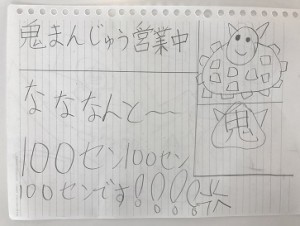 鬼まんじゅう営業中
なななんと〜〜
100セン100セン
100センです!!!!
鬼